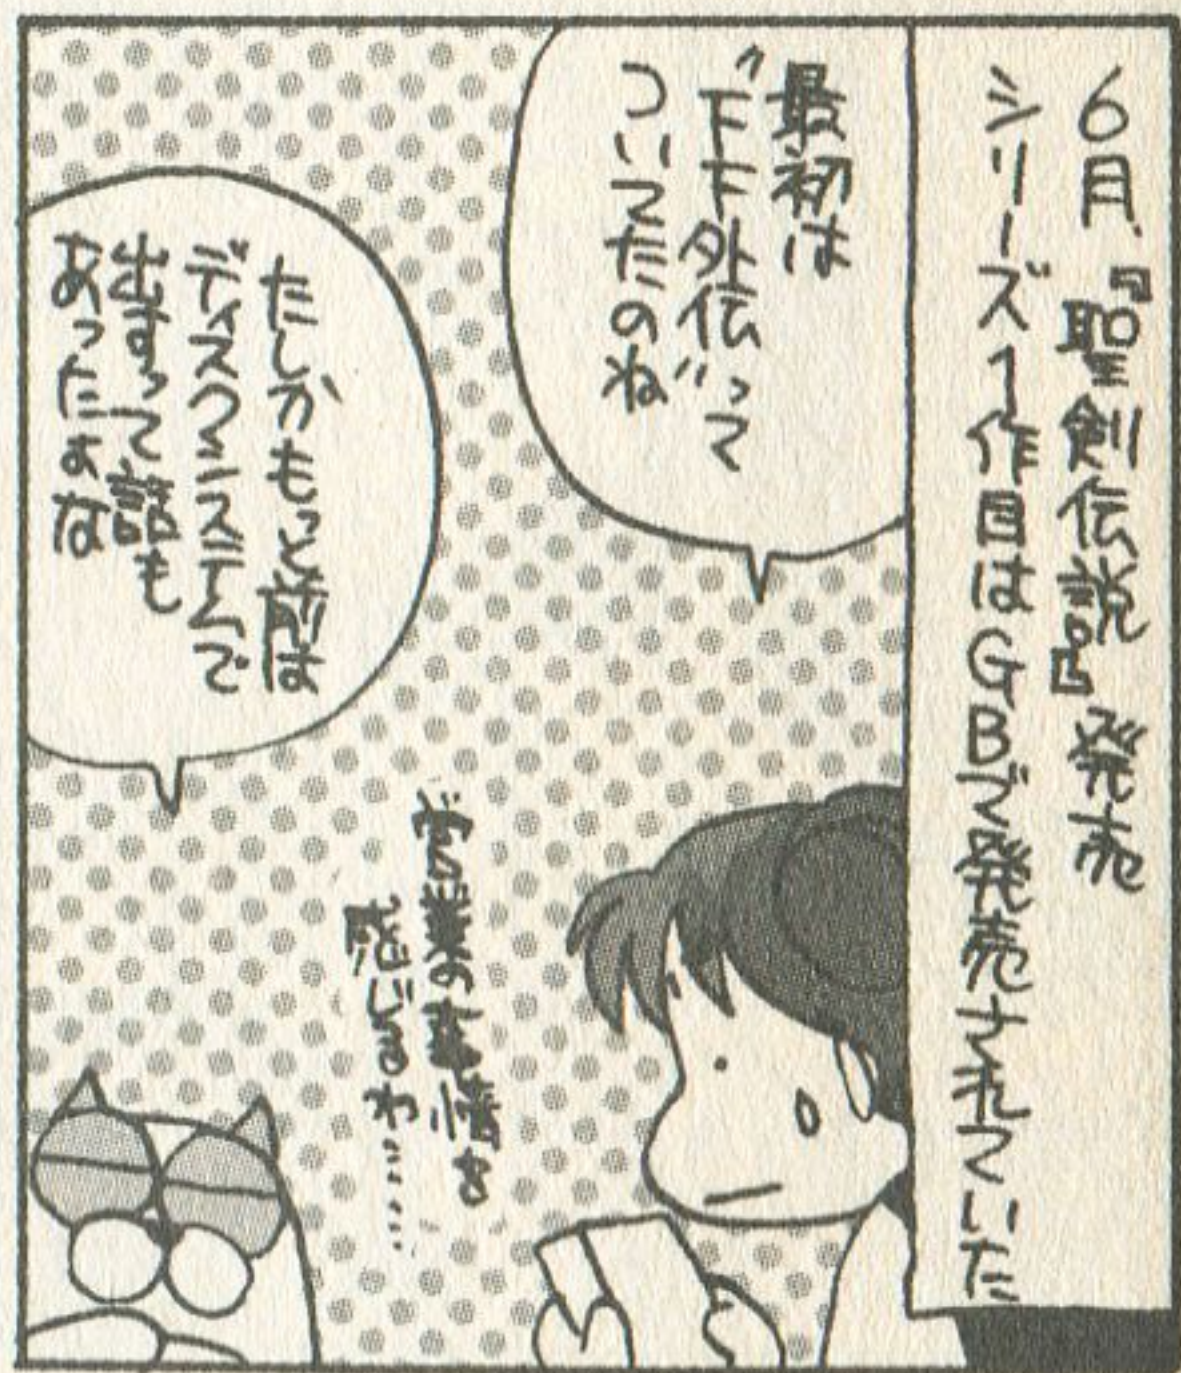 6月、『聖剣伝説』発売
シリーズ1作目はGBで発売されていた
最初は
“FF外伝”って
ついてたのね
たしかもっと前は
ディスクシステムで
出すって話も
あったよな
営業の事情を
感じるわ……